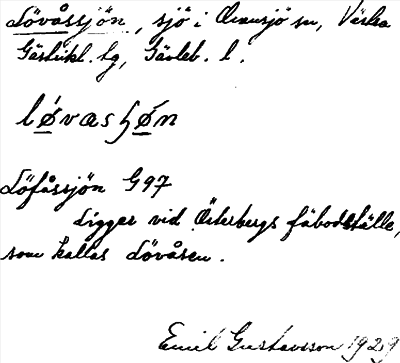 Lövåssjön, sjö i Ovansjö sn, Västra
Gästrikl. tg, Gävleb. l.
lǿvasɧø̀n
Löfåssjön G97
Ligger vid Österbergs fäbodställe,
som kallas Lövåsen.
Emil Gustavsson 1929